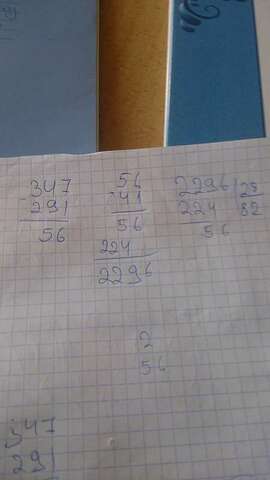 347
- 291
56
56
41
56
224
2296
2296 | 28
224 82
56
2
56
347
291